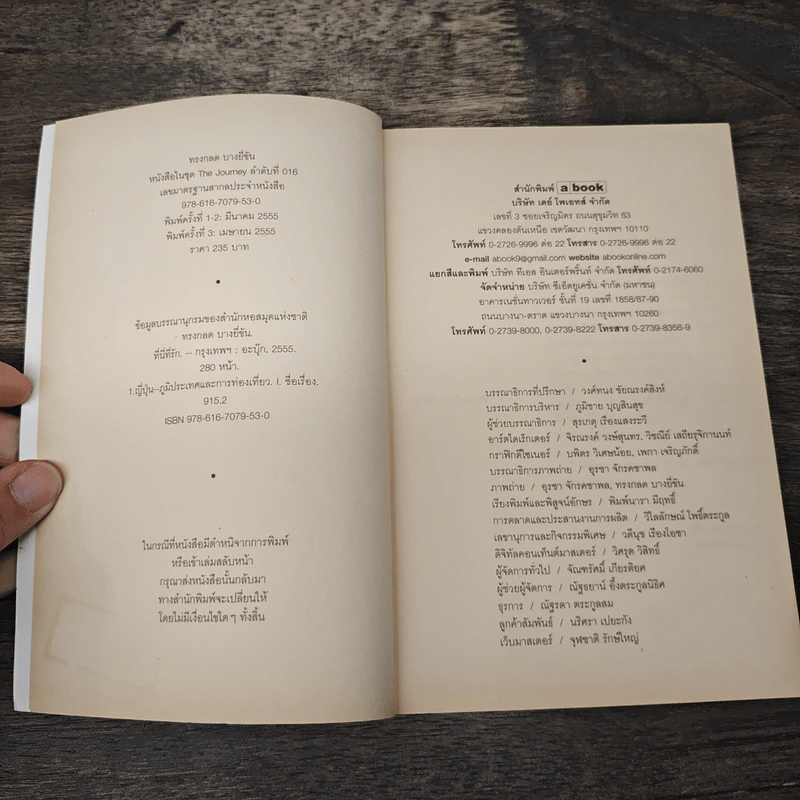 ทรงกลด บางยี่ขัน
หนังสือในชุด The Journey ลำดับที่ 016
เลขมาตรฐานสากลประจำหนังสือ
978-616-7079-53-0
พิมพ์ครั้งที่ 1-2: มีนาคม 2555
พิมพ์ครั้งที่ 3: เมษายน 2555
ราคา 235 บาท
•
ข้อมูลบรรณานุกรมของสำนักหอสมุดแห่งชาติ
ทรงกลด บางยี่ขัน.
ที่นี่ที่รัก. -- กรุงเทพฯ : อะบุ๊ก, 2555.
280 หน้า.
1.ญี่ปุ่น--ภูมิประเทศและการท่องเที่ยว. I. ชื่อเรื่อง.
915.2
ISBN 978-616-7079-53-0
•
ในกรณีที่หนังสือมีตำหนิจากการพิมพ์
หรือเข้าเล่มสลับหน้า
กรุณาส่งหนังสือนั้นกลับมา
ทางสำนักพิมพ์จะเปลี่ยนให้
โดยไม่มีเงื่อนไขใด ๆ ทั้งสิ้น
สำนักพิมพ์ a book
บริษัท เดย์ โพเอทส์ จำกัด
เลขที่ 3 ซอยเจริญมิตร ถนนสุขุมวิท 63
แขวงคลองตันเหนือ เขตวัฒนา กรุงเทพฯ 10110
โทรศัพท์ 0-2726-9996 ต่อ 22 โทรสาร 0-2726-9996 ต่อ 22
e-mail abook9@gmail.com website abookonline.com
แยกสีและพิมพ์ บริษัท ทีเอส อินเตอร์พริ้นท์ จำกัด โทรศัพท์ 0-2174-6060
จัดจำหน่าย บริษัท ซีเอ็ดยูเคชั่น จำกัด (มหาชน)
อาคารเนชั่นทาวเวอร์ ชั้นที่ 19 เลขที่ 1858/87-90
ถนนบางนา-ตราด แขวงบางนา กรุงเทพฯ 10260
โทรศัพท์ 0-2739-8000, 0-2739-8222 โทรสาร 0-2739-8356-9
•
บรรณาธิการที่ปรึกษา / วงศ์ทนง ชัยณรงค์สิงห์
บรรณาธิการบริหาร / ภูมิชาย บุญสินสุข
ผู้ช่วยบรรณาธิการ / สุรเกตุ เรืองแสงระวี
อาร์ตไดเร็กเตอร์ / จิรณรงค์ วงษ์สุนทร, วิชณีย์ เสถียรุจิกานนท์
กราฟิกดีไซเนอร์ / บพิตร วิเศษน้อย, เพกา เจริญภักดิ์
บรรณาธิการภาพถ่าย / อุรชา จักรคชาพล
ภาพถ่าย / อุรชา จักรคชาพล, ทรงกลด บางยี่ขัน
เรียงพิมพ์และพิสูจน์อักษร / พิมพ์นารา มีฤทธิ์
การตลาดและประสานงานการผลิต / วิไลลักษณ์ โพธิ์ตระกูล
เลขานุการและกิจกรรมพิเศษ / วดีนุช เรืองโอชา
ดิจิทัลคอนเท็นต์มาสเตอร์ / วิศรุต วิสิทธิ์
ผู้จัดการทั่วไป / จัณฑรัศมิ์ เกียรติยศ
ผู้ช่วยผู้จัดการ / ณัฐธยาน์ อึ้งตระกูลนิธิศ
ธุรการ / ณัฐรดา ตระกูลสม
ลูกค้าสัมพันธ์ / นริศรา เปยะกัง
เว็บมาสเตอร์ / จุฬชาติ รักษ์ใหญ่